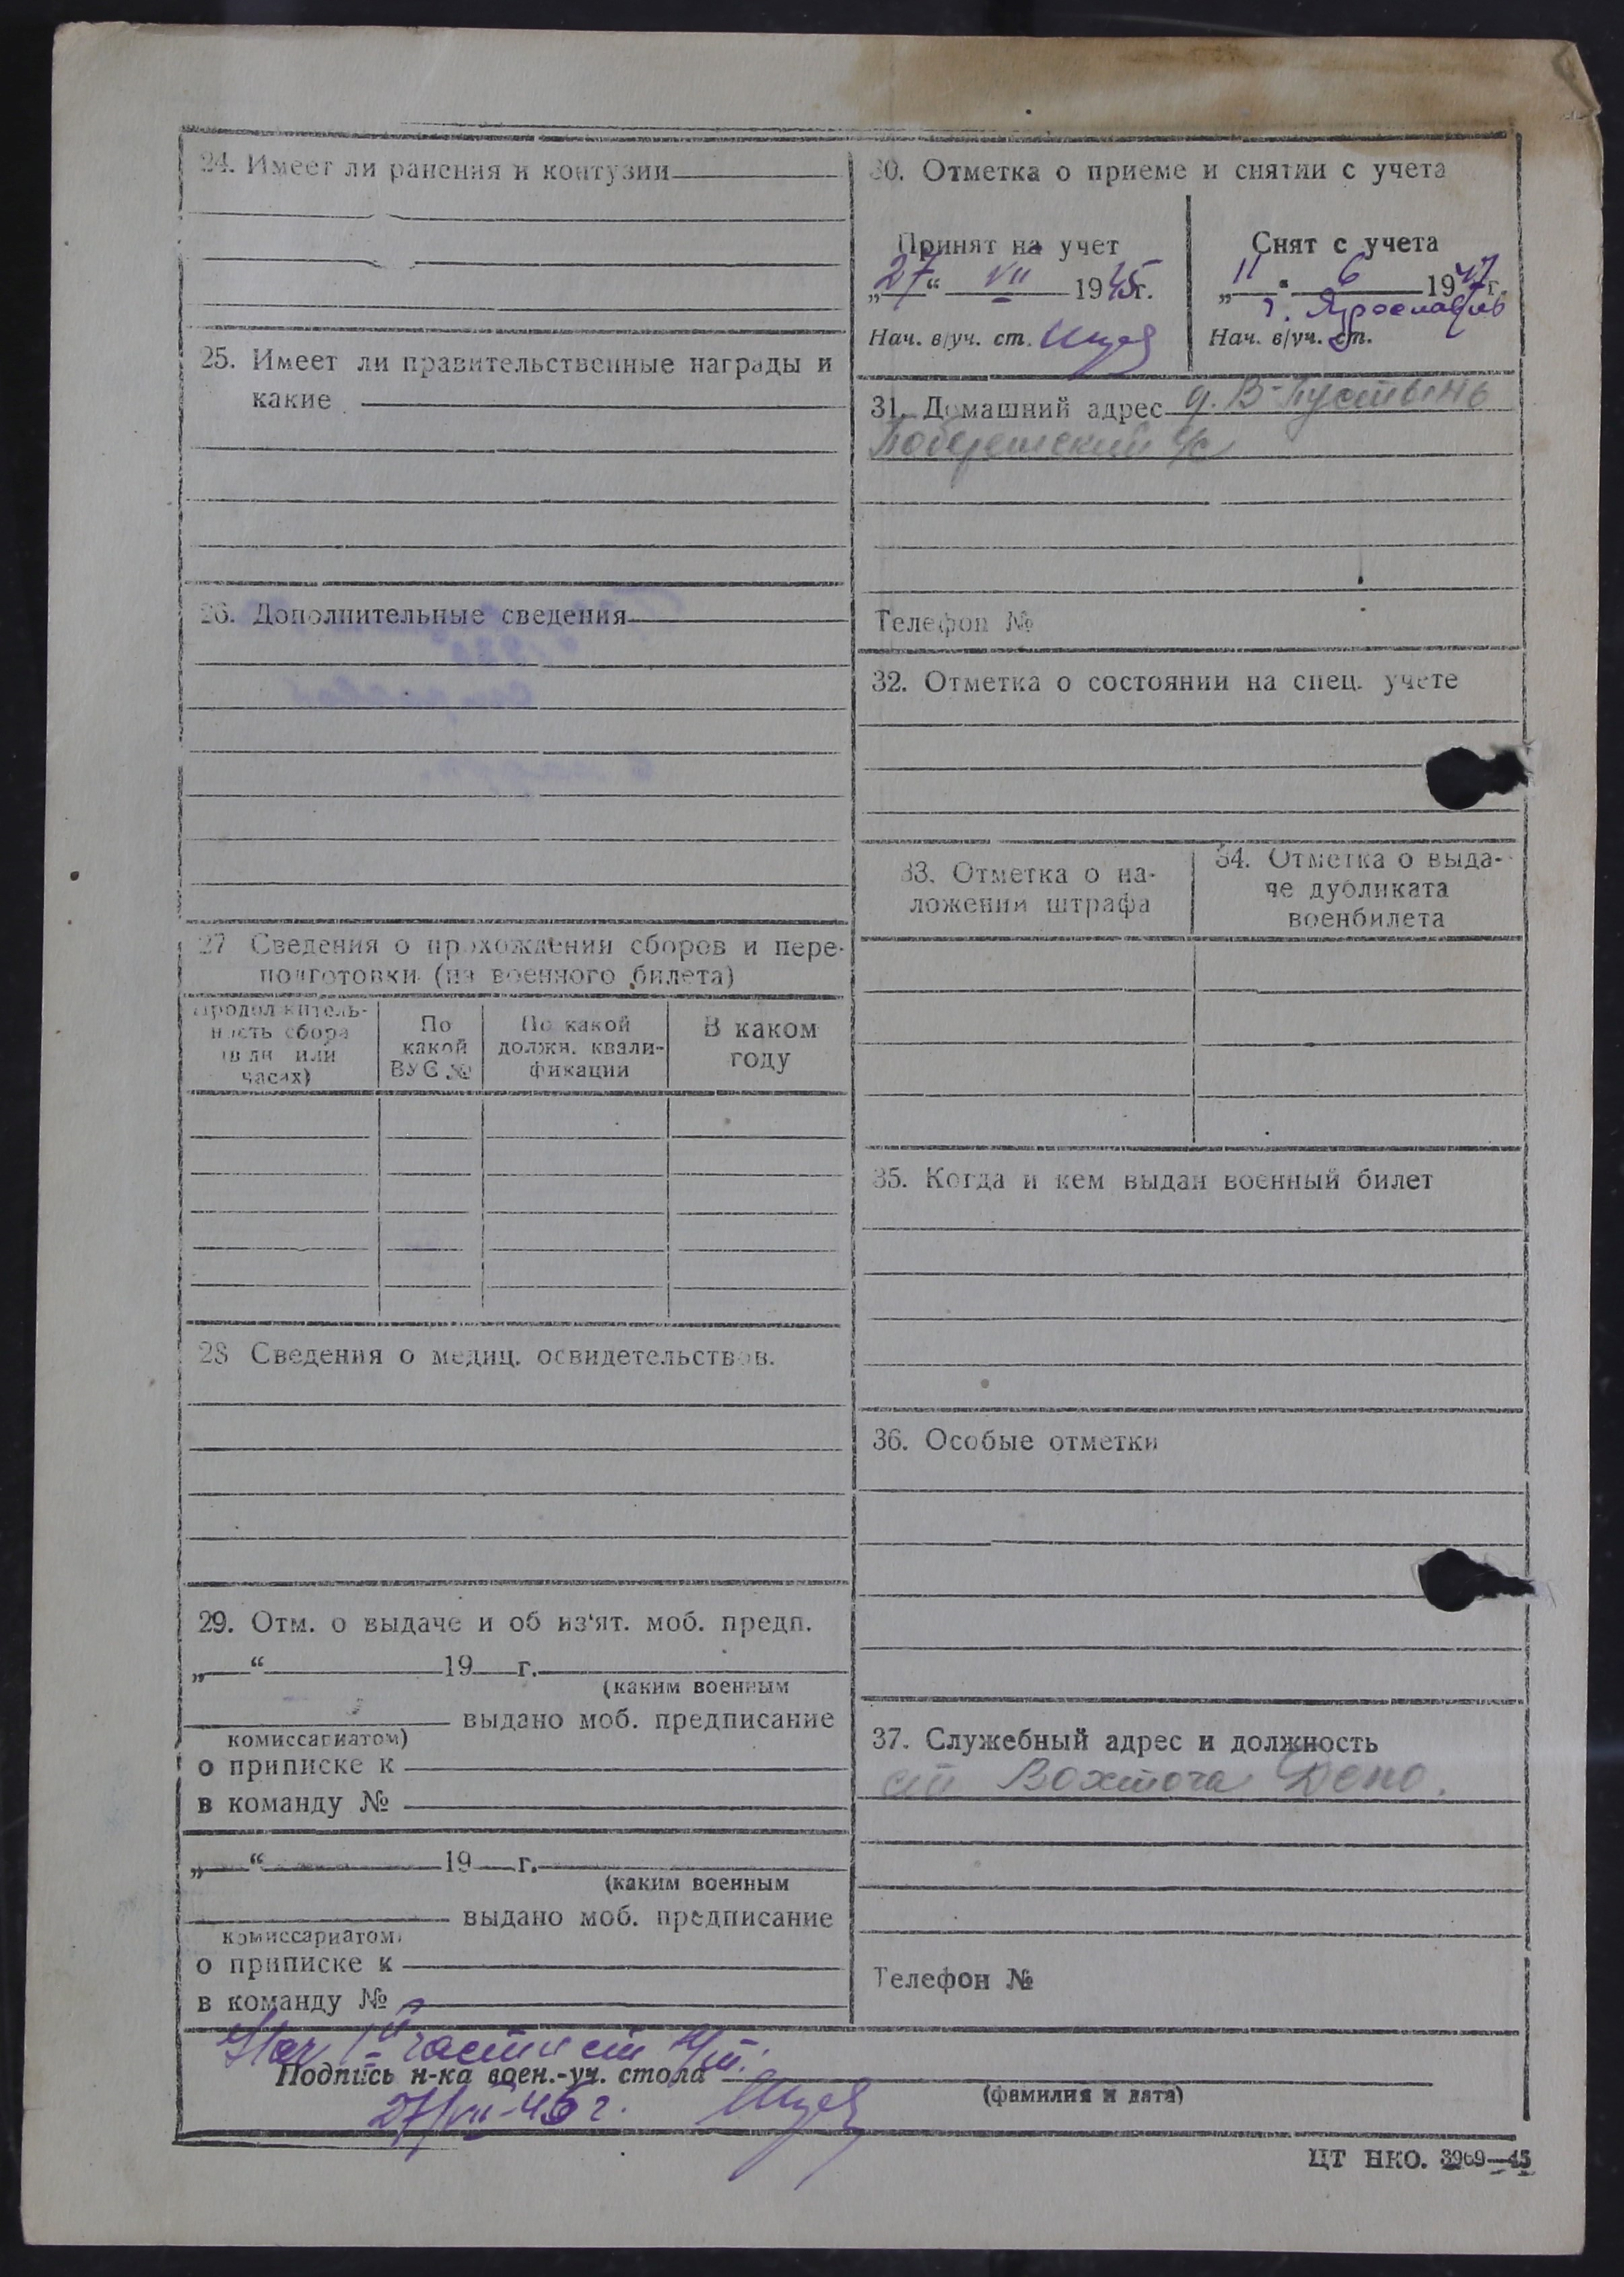 24. Имеет ли ранения и контузии
25. Имеет ли правительственные награды и
какие
26. Дополнительные сведения
27 Сведения о прохождении сборов и пере-
подготовки (из военного билета)
Продолжитель-
ность сбора
(в дн или
часах)
По
какой
ВУС №
По какой
должн. квали-
фикации
В каком
году
28 Сведения о медиц. освидетельствов.
29. Отм. о выдаче и об из'ят. моб. предп.
„ “ 19 г.
(каким военным
выдано моб. предписание
комиссариатом)
о приписке к
в команду №
„ “ 19 г.
(каким военным
выдано моб. предписание
комиссариатом)
о приписке к
в команду №
30. Отметка о приеме и снятии с учета
Принят на учет
„27“ VII 1945г.
Нач. в/уч. ст.
Снят с учета
„11“ 6 1947г.
г. Ярославль
Нач. в/уч. ст.
31. Домашний адрес д. В-Пустынь
с/с
Телефон №
32. Отметка о состоянии на спец. учете
33. Отметка о на-
ложении штрафа
34. Отметка о выда-
че дубликата
военбилета
35. Когда и кем выдан военный билет
36. Особые отметки
37. Служебный адрес и должность
ст Вохтога Депо.
Телефон №
Нач части ст
Подпись н-ка воен.-уч. стола
(фамилия и дата)
27/VII-45 г.
ЦТ НКО. 3969—45